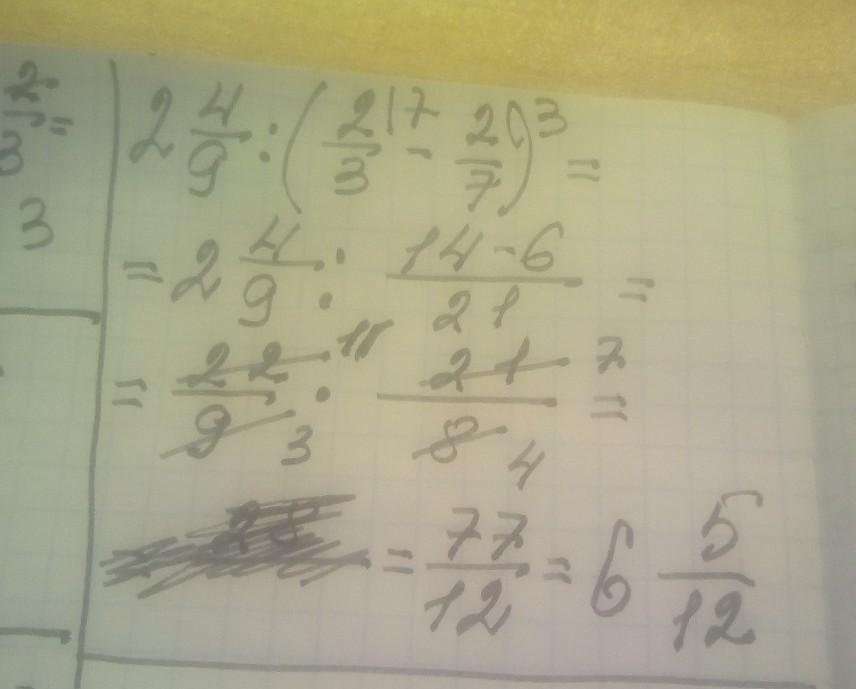 2/3 =
3
2 4/9 : (2/3 |7 - 2/7 |3) =
= 2 4/9 : 14-6/21 =
= 22/9 11 3 · 21/8 7 4 =
= 77/12 = 6 5/12